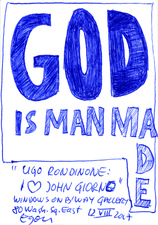 GOD
IS MANMADE
"UGO RONDINONE:
I ♡ JOHN GIORNO"
WINDOWS ON B/WAY GALLERY
80 Wash. Sq. East 12 VIII 2017